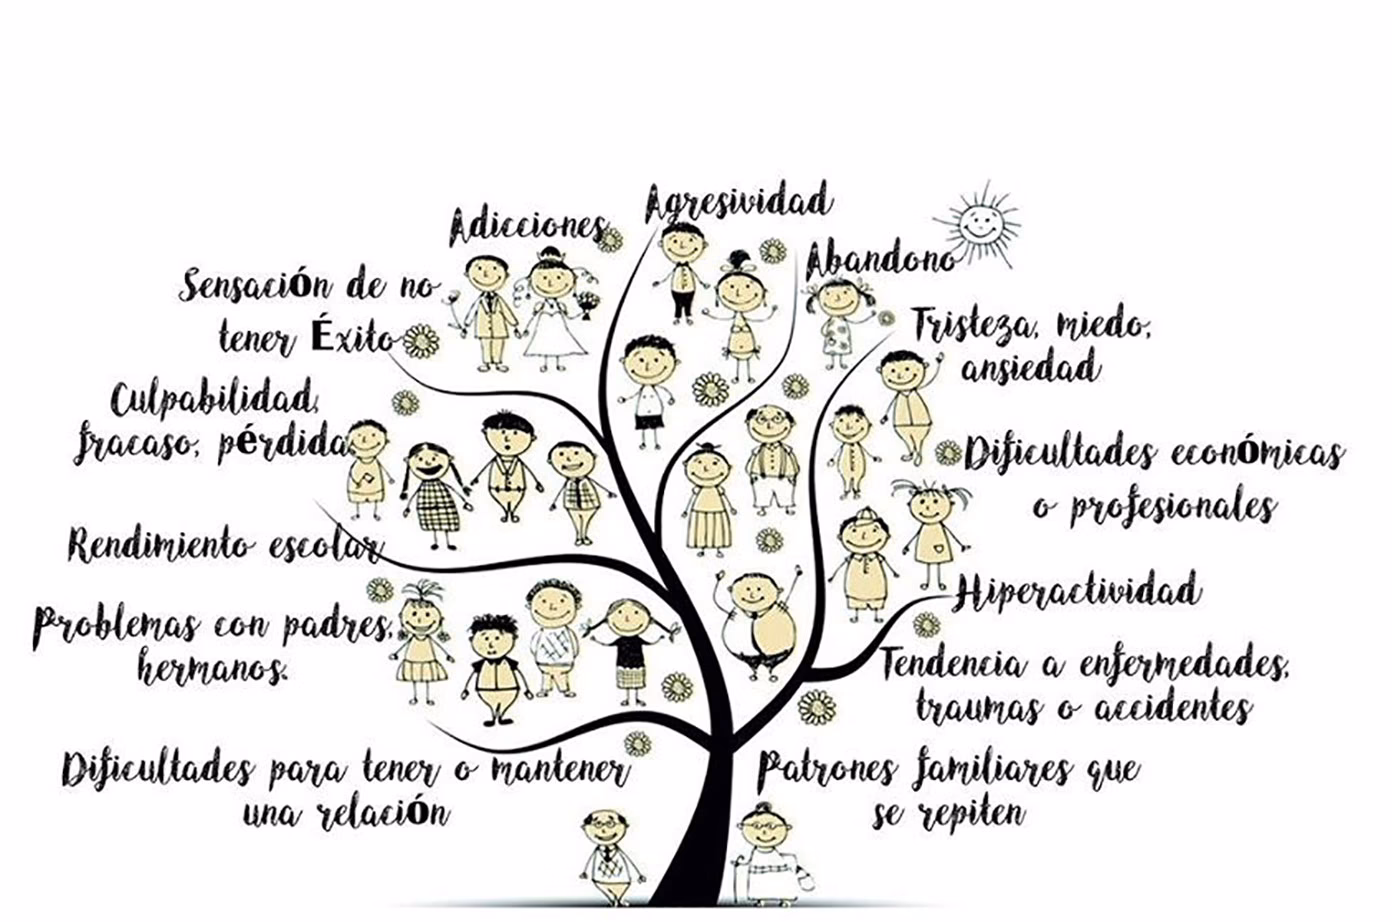 Agresividad
Adicciones
Abandono
Sensación de no
tener Éxito
Tristeza, miedo,
ansiedad
Culpabilidad,
fracaso, pérdida
Dificultades económicas
o profesionales
Rendimiento escolar
Hiperactividad
Problemas con padres,
hermanos.
Tendencia a enfermedades,
traumas o accidentes
Dificultades para tener o mantener
una relación
Patrones familiares que
se repiten